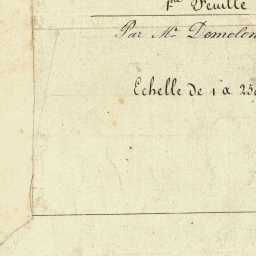 1re Feuille
Par Mr. Demolon
Echelle de 1 a 25